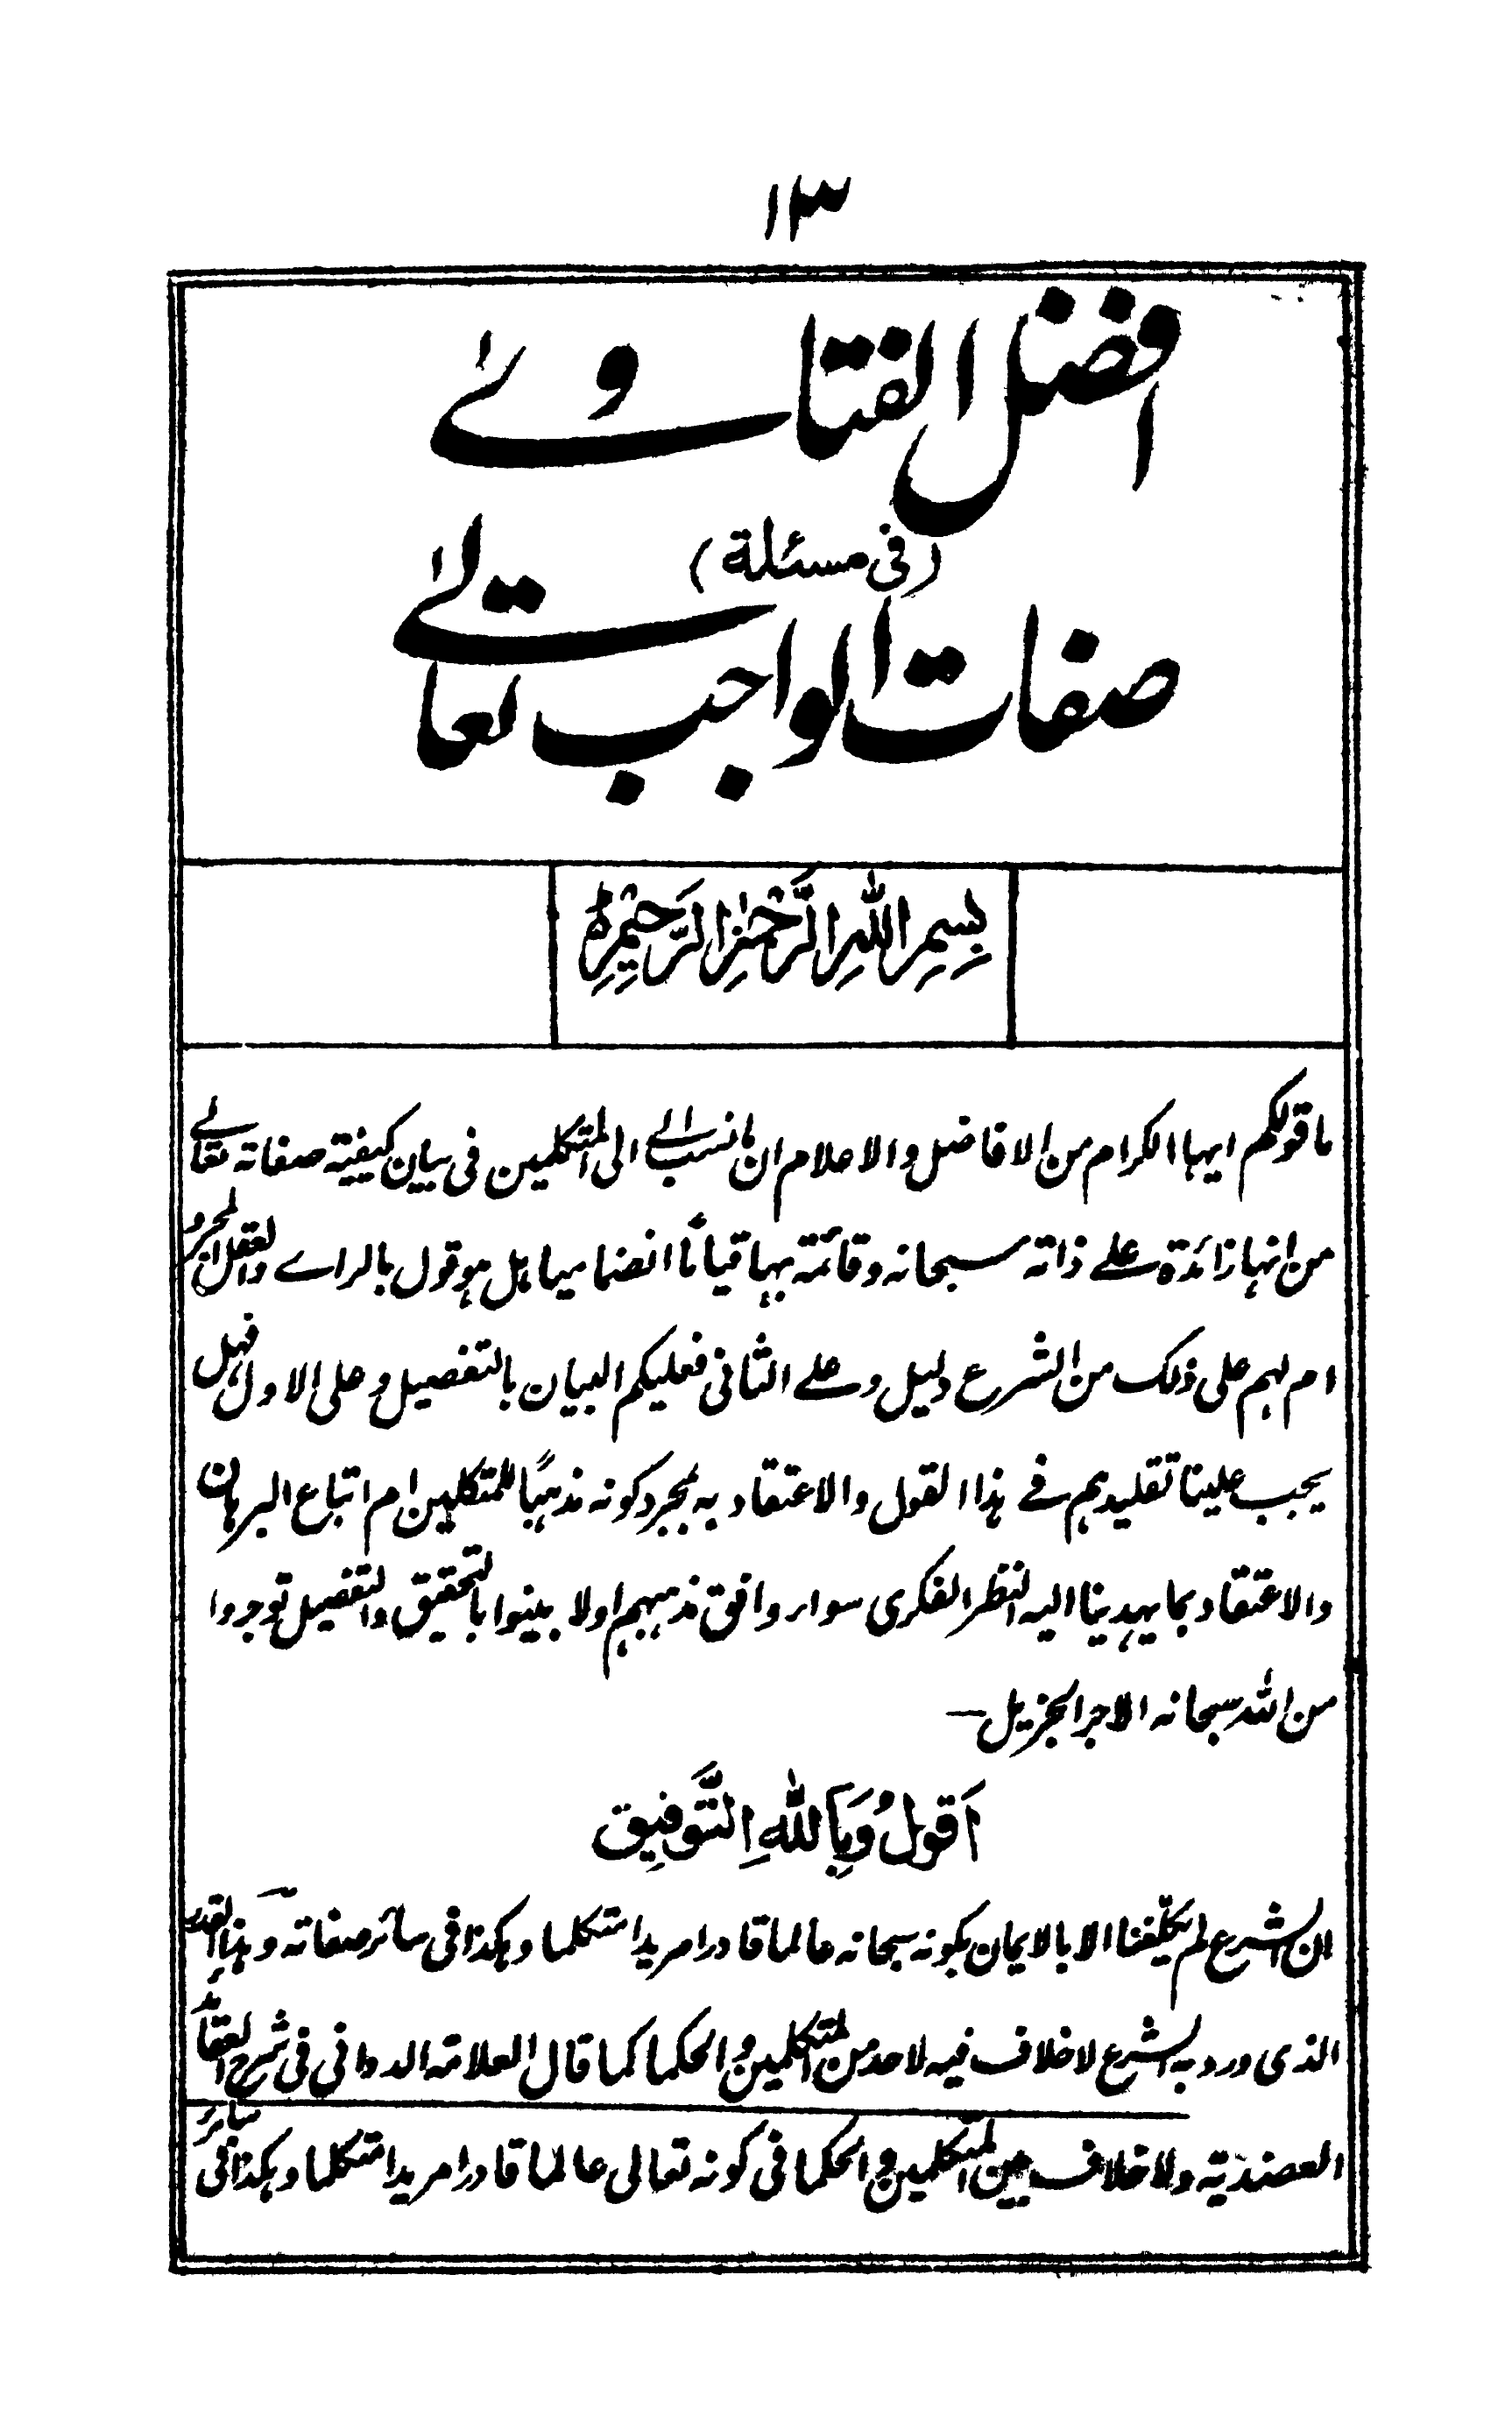 ۱۳
افضل الفتاوے
(فی مسئلة)
صفات الواجب تعالےٰ
بِسمِ اللهِ الرَّحمٰنِ الرَّحِيمِ
ما قولكم ايها الكرام من الافاضل والاعلام ان ما نسب الے المتكلمين فی بيان كيفية صفاته تعالے
من انها زائدة علے ذاته سبحانه وقائمة بها قياماً انضماميا هل هو قول بالراے والعقل المجرد
ام لهم علی ذلك من الشرع دليل وعلے الثانی فعليكم البيان بالتفصيل وعلی الاول فهل
يجب علينا تقليدهم فے هذا القول والاعتقاد به بمجرد كونه مذهبًا للمتكلمين ام اتباع البرهان
والاعتقاد بما يهدينا اليه النظر الفكری سواء وافق مذهبهم اولا بينوا بالتحقيق والتفصيل توجروا
من الله سبحانه الاجر الجزيل—
اَقولُ وَبِاللهِ التَّوفِيق
ان الشرع لم يكلّفنا الا بالايمان بكونه سبحانه عالما قادرا مريدا متكلما وهكذا فی سائر صفاته وهذا القدر
الذی ورد به الشرع لا خلاف فيه لاحد من المتكلمين والحكما كما قال العلامة الدوانی فی شرح العقائد
العضدية ولا خلاف بين المتكلمين والحكما فی كونه تعالی عالما قادرا مريدا متكلما وهكذا فی سائر